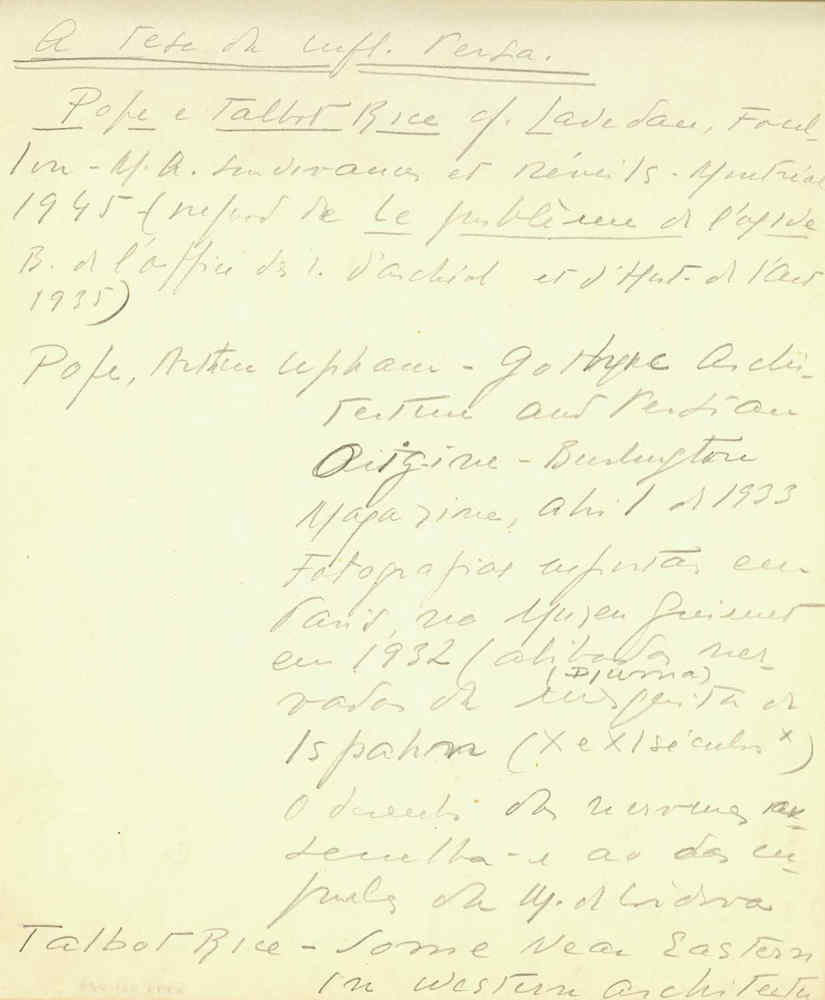 A tese da infl. Persa.
Pope e Talbot Rice cf. Lavedan, Focil-
lon - M. A. Survivances et réveils - Montréal
1945 - ( de Le problème de l'ogive
B. de l'office des i. d'archéol et d'Hist. de l'Art
1935)
Pope, Arthur Upham - Gothyc Archi-
tecture and Persian
Origine - Burlington
Magazine, abril de 1933
Fotografias expostas em
Paris, no Museu Guimet
em 1932 (abóbadas ner-
(Djuma)
vadas da mesquita de
Ispahan (X e XI séculos x)
O desenho das nervuras as-
semelha-se ao das cú-
pulas da M. de Cordova
Talbot Rice - Some Near Eastern
in western architectu